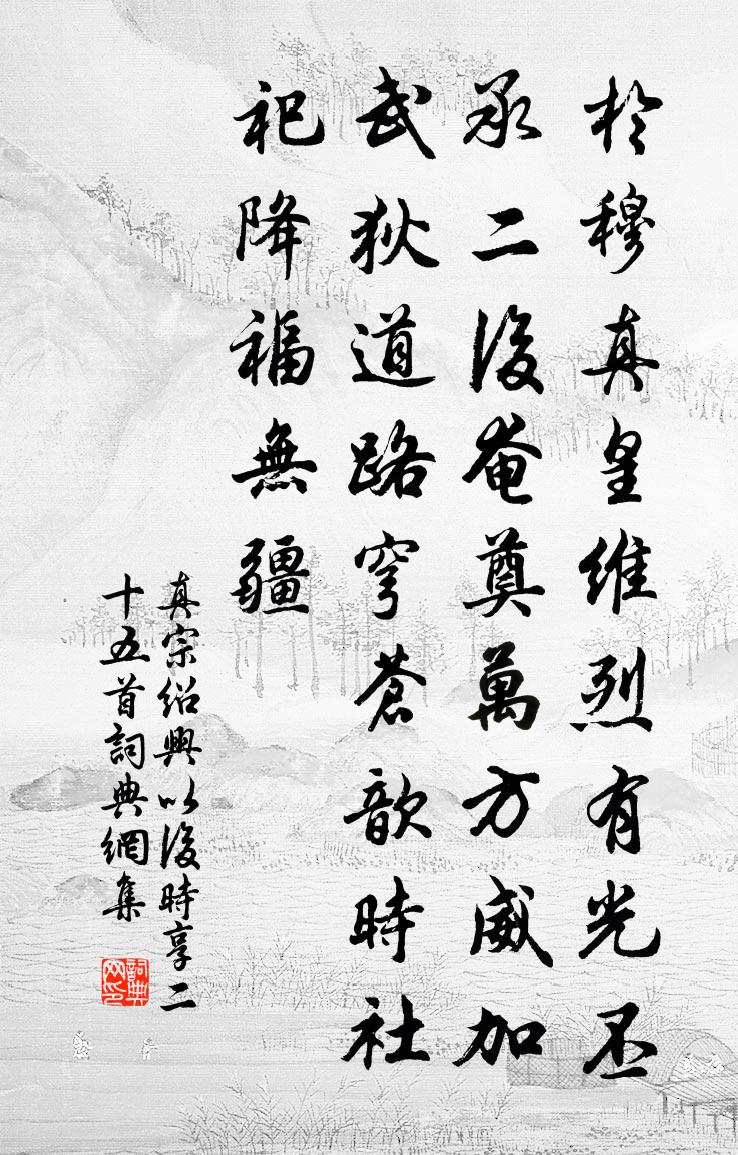 於穆真皇維烈有光丕
承二後奄奠萬方威加
武狄道路穹蒼歆時社
祀降福無疆
真宗紹興以後時享二
十五首詞典網集
詞典
网印